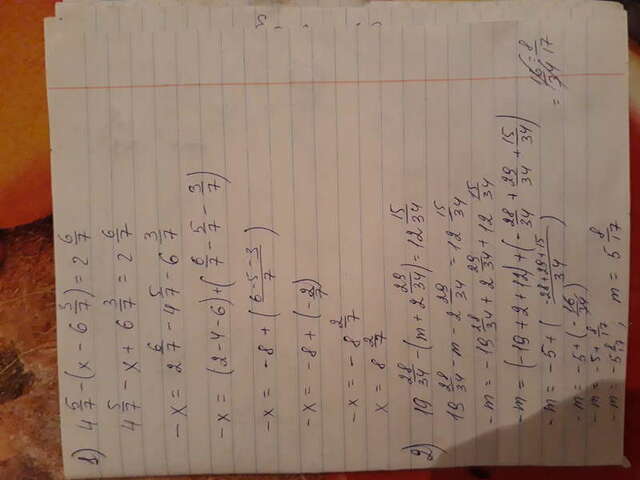 1) 4 5/7 - (x - 6 3/7) = 2 6/7
4 5/7 - x + 6 3/7 = 2 6/7
-x = 2 6/7 - 4 5/7 - 6 3/7
-x = (2-4-6)+(6/7 - 5/7 - 3/7)
-x = -8 + (6-5-3/7)
-x = -8 + (-2/7)
-x = -8 2/7
x = 8 2/7
2) 19 28/34 - (m + 2 29/34) = 12 15/34
19 28/34 - m - 2 29/34 = 12 15/34
-m = -19 28/34 + 2 29/34 + 12 15/34
-m = (-19+2+12)+(-28/34 + 29/34 + 15/34)
-m = -5 + (-28+29+15/34) = 16/34 = 8/17
-m = -5 + (-16/34)
-m = -5 + 8/17
-m = -5 8/17, m = 5 8/17